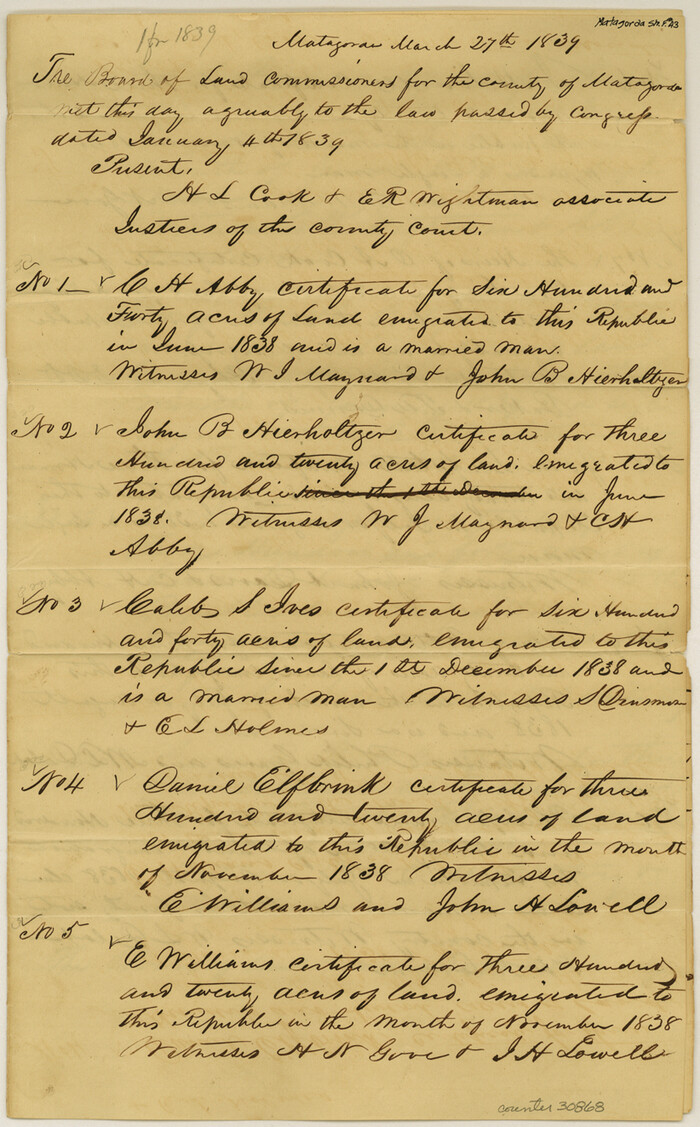 Matagorda Sk. F. #3
1 for 1839
Matagorda March 27th 1839
The Board of Land Commissioners for the county of Matagorda
met this day agreeably to the law passed by Congress
dated January 4th 1839
Present,
H L Cook & E R Wightman associate
Justices of the county court.
No 1 C H Abby certificate for Six Hundred and
Forty acres of Land emigrated to this Republic
in June 1838 and is a married man.
Witnesses W J Maynard & John B Hierholtzer
No 2 John B Hierholtzer certificate for three
Hundred and twenty acres of land. emigrated to
this Republic since the 1st December in June
1838. Witnesses W J Maynard & C H
Abby
No 3 Caleb S Ives certificate for Six Hundred
and forty acres of land. emigrated to this
Republic Since the 1st December 1838 and
is a married man Witnesses S Dinsmore
& E L Holmes
No 4 Daniel Elfbrink certificate for three
Hundred and twenty acres of land
emigrated to this Republic in the month
of November 1838 Witnesses
E Williams and John H Lowell
No 5
E Williams certificate for three Hundred
and twenty acres of land. emigrated to
this Republic in the month of November 1838
Witnesses H N Gove & J H Lowell
counter 30868